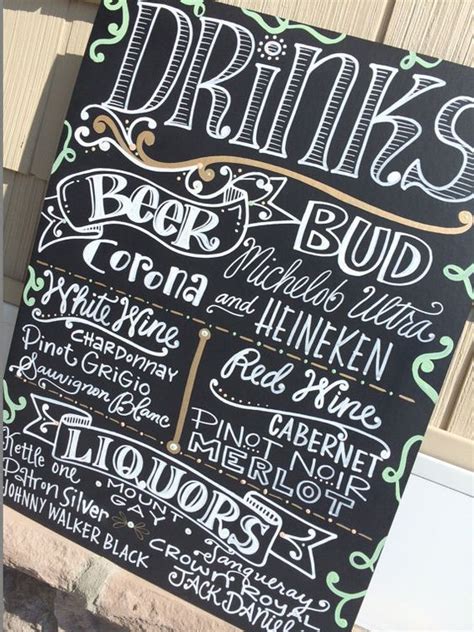 DRinKS
BEER BUD
Corona Michelob Ultra
and HEINEKEN
White Wine
CHARDONNAY
Pinot GRiGio
Sauvignon Blanc
Red Wine
CABERNET
PINOT NOIR
MERLOT
LIQUORS
Kettle one
Patron Silver
JOHNNY WALKER BLACK
MOUNT
GAY
Tanqueray
CROWN ROYAL
JACK DANiEL